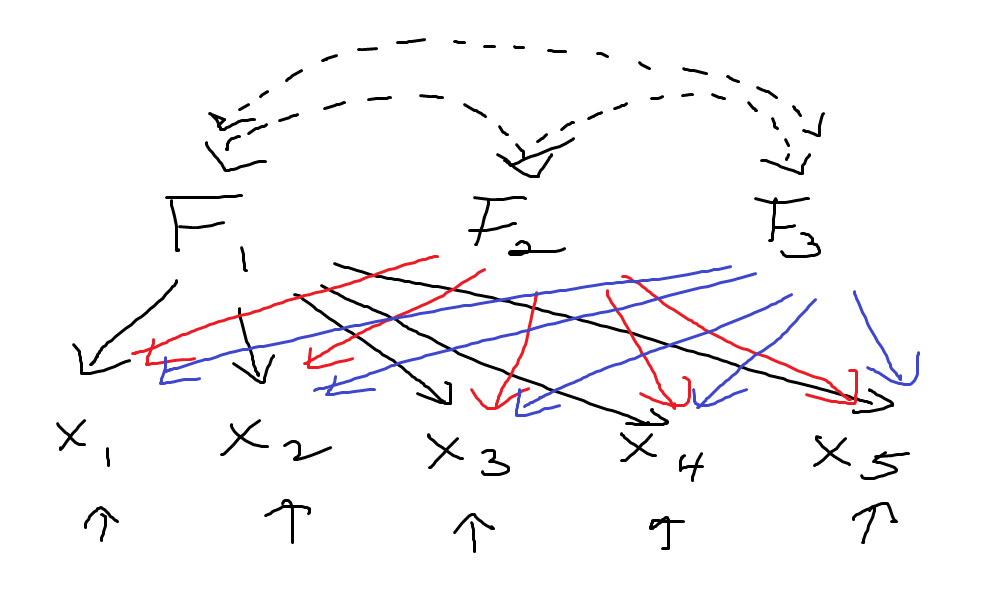 F1 F2 F3
X1 X2 X3 X4 X5